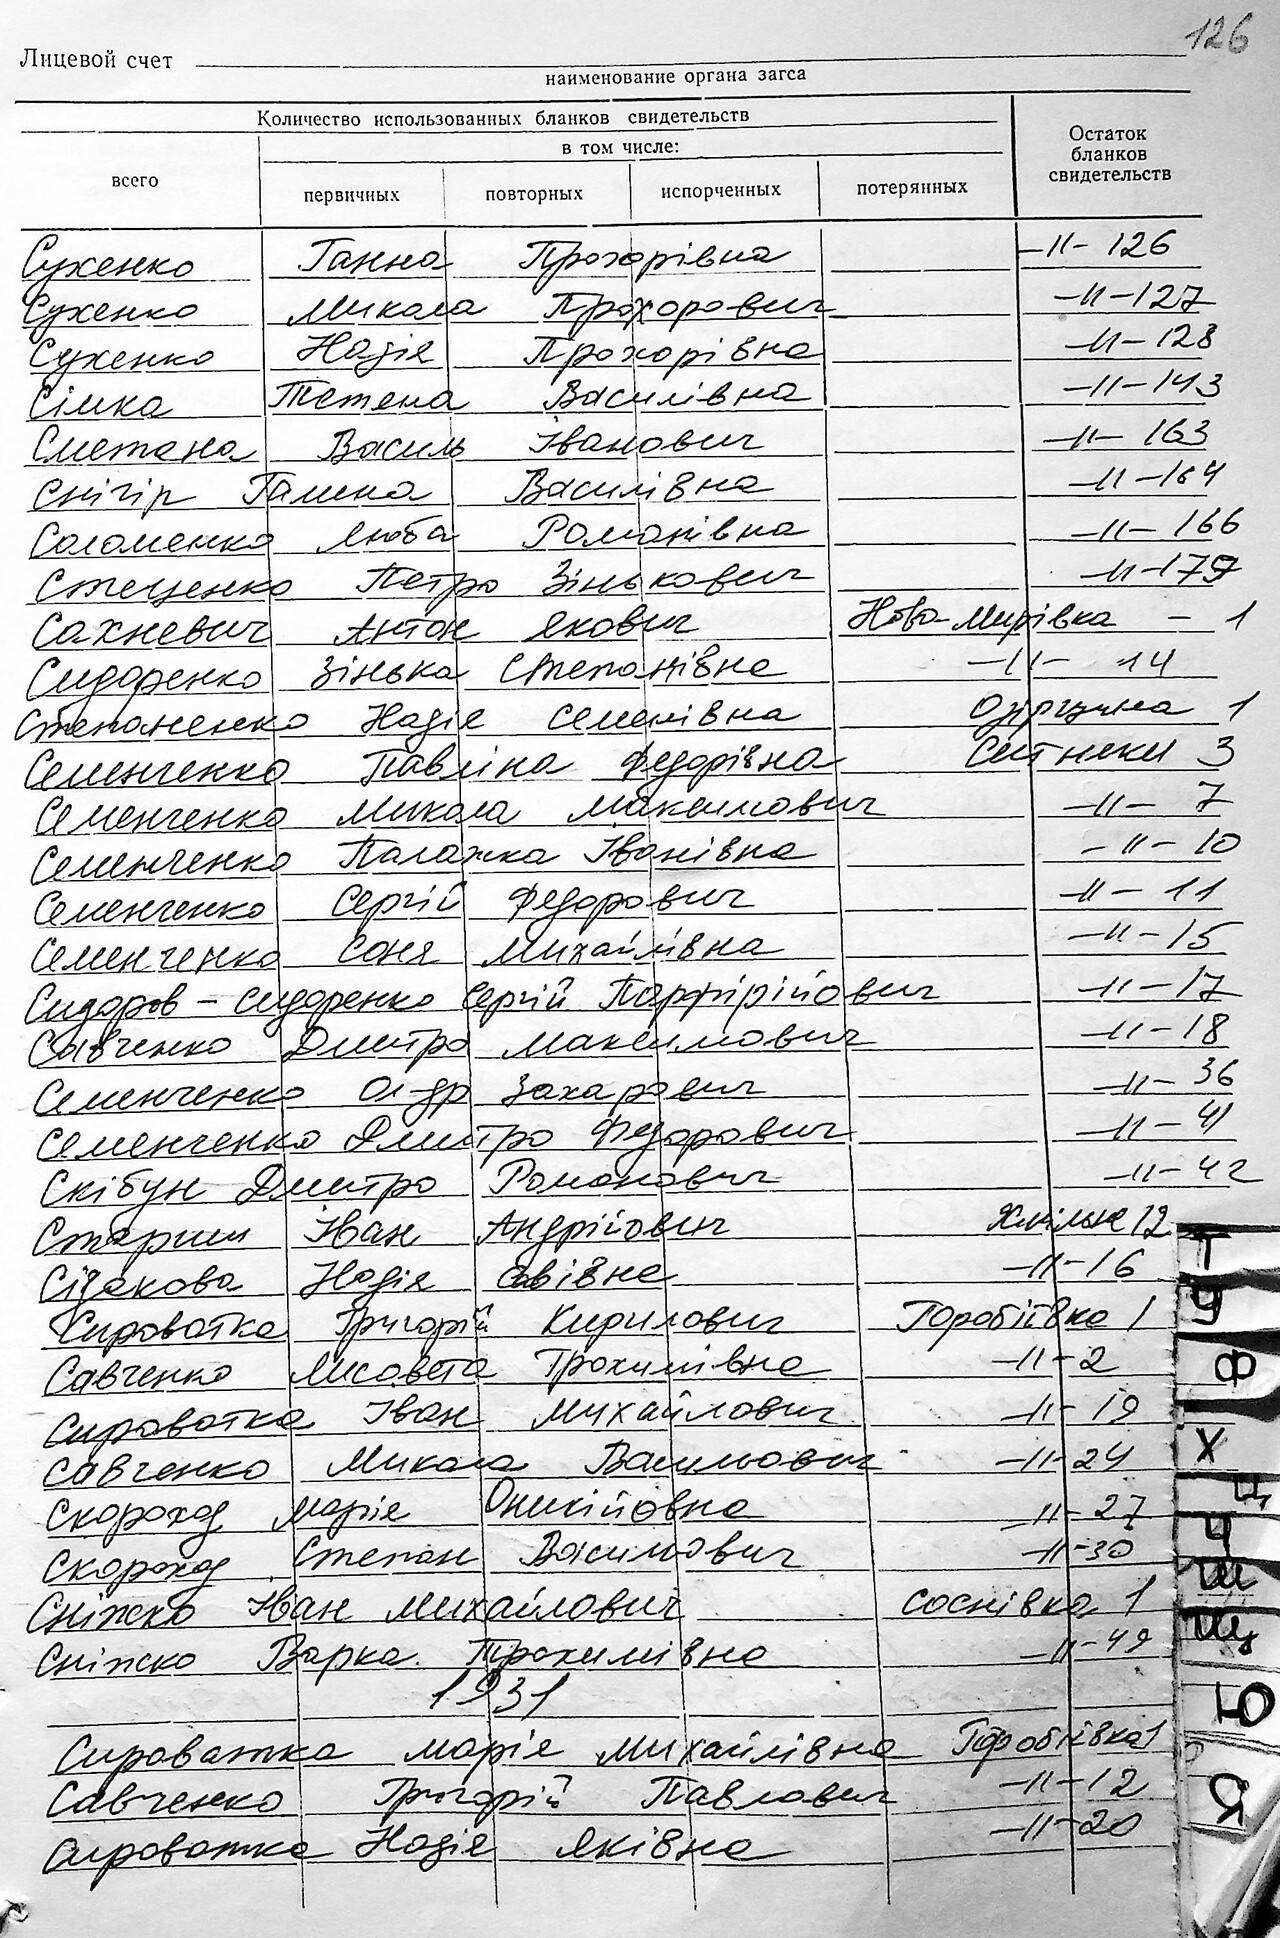 126
Лицевой счет
наименование органа загса
Количество использованных бланков свидетельств
Остаток бланков свидетельств
в том числе:
всего
первичных повторных испорченных потерянных
Сухенко Ганна Прохорівна -11- 126
Сухенко Микола Прохорович -11- 127
Сухенко Надія Прохорівна -11- 128
Сімка Тетена Василівна -11- 143
Сметана Василь Іванович -11- 163
Снігір Галина Василівна -11- 164
Соломенко Люба Романівна -11- 166
Стеценко Петро Зінькович -11- 179
Сахневич Антон Якович Ново-Мирівка - 1
Сидоренко Зінька Степанівна -11- 14
Степаненко Надія Семенівна 1
Семенченко Павліна Федорівна Ситники 3
Семенченко Микола Максимович -11- 7
Семенченко Палажка Іванівна -11- 10
Семенченко Сергій Федорович -11- 11
Семенченко Соня Михайлівна -11- 15
Сидоров - Сидоренко Сергій Парфірійович -11- 17
Савченко Дмитро Максимович -11- 18
Семенченко Ол-др Захарович -11- 36
Семенченко Дмитро Федорович -11- 41
Скібун Дмитро Романович -11- 42
Старши Іван Андрійович Хмільна 12
Надія Савівна -11- 16
Сироватка Григорій Кирилович Горобіївка 1
Савченко Лисавета Трохимівна -11- 2
Сироватка Іван Михайлович -11- 19
Савченко Микола Васильович -11- 24
Скороход Марія Оникійовна -11- 27
Скороход Степан Васильович -11- 30
Сніжко Іван Михайлович Соснівка 1
Сніжко Варка Трохимівна -11- 49
1931
Сироватка Марія Михайлівна Горобіївка 1
Савченко Григорій Павлович -11- 12
Сироватка Надія Яківна -11- 20
Т
У
Ф
Х
Ц
Ч
Ш
Щ
Ю
Я